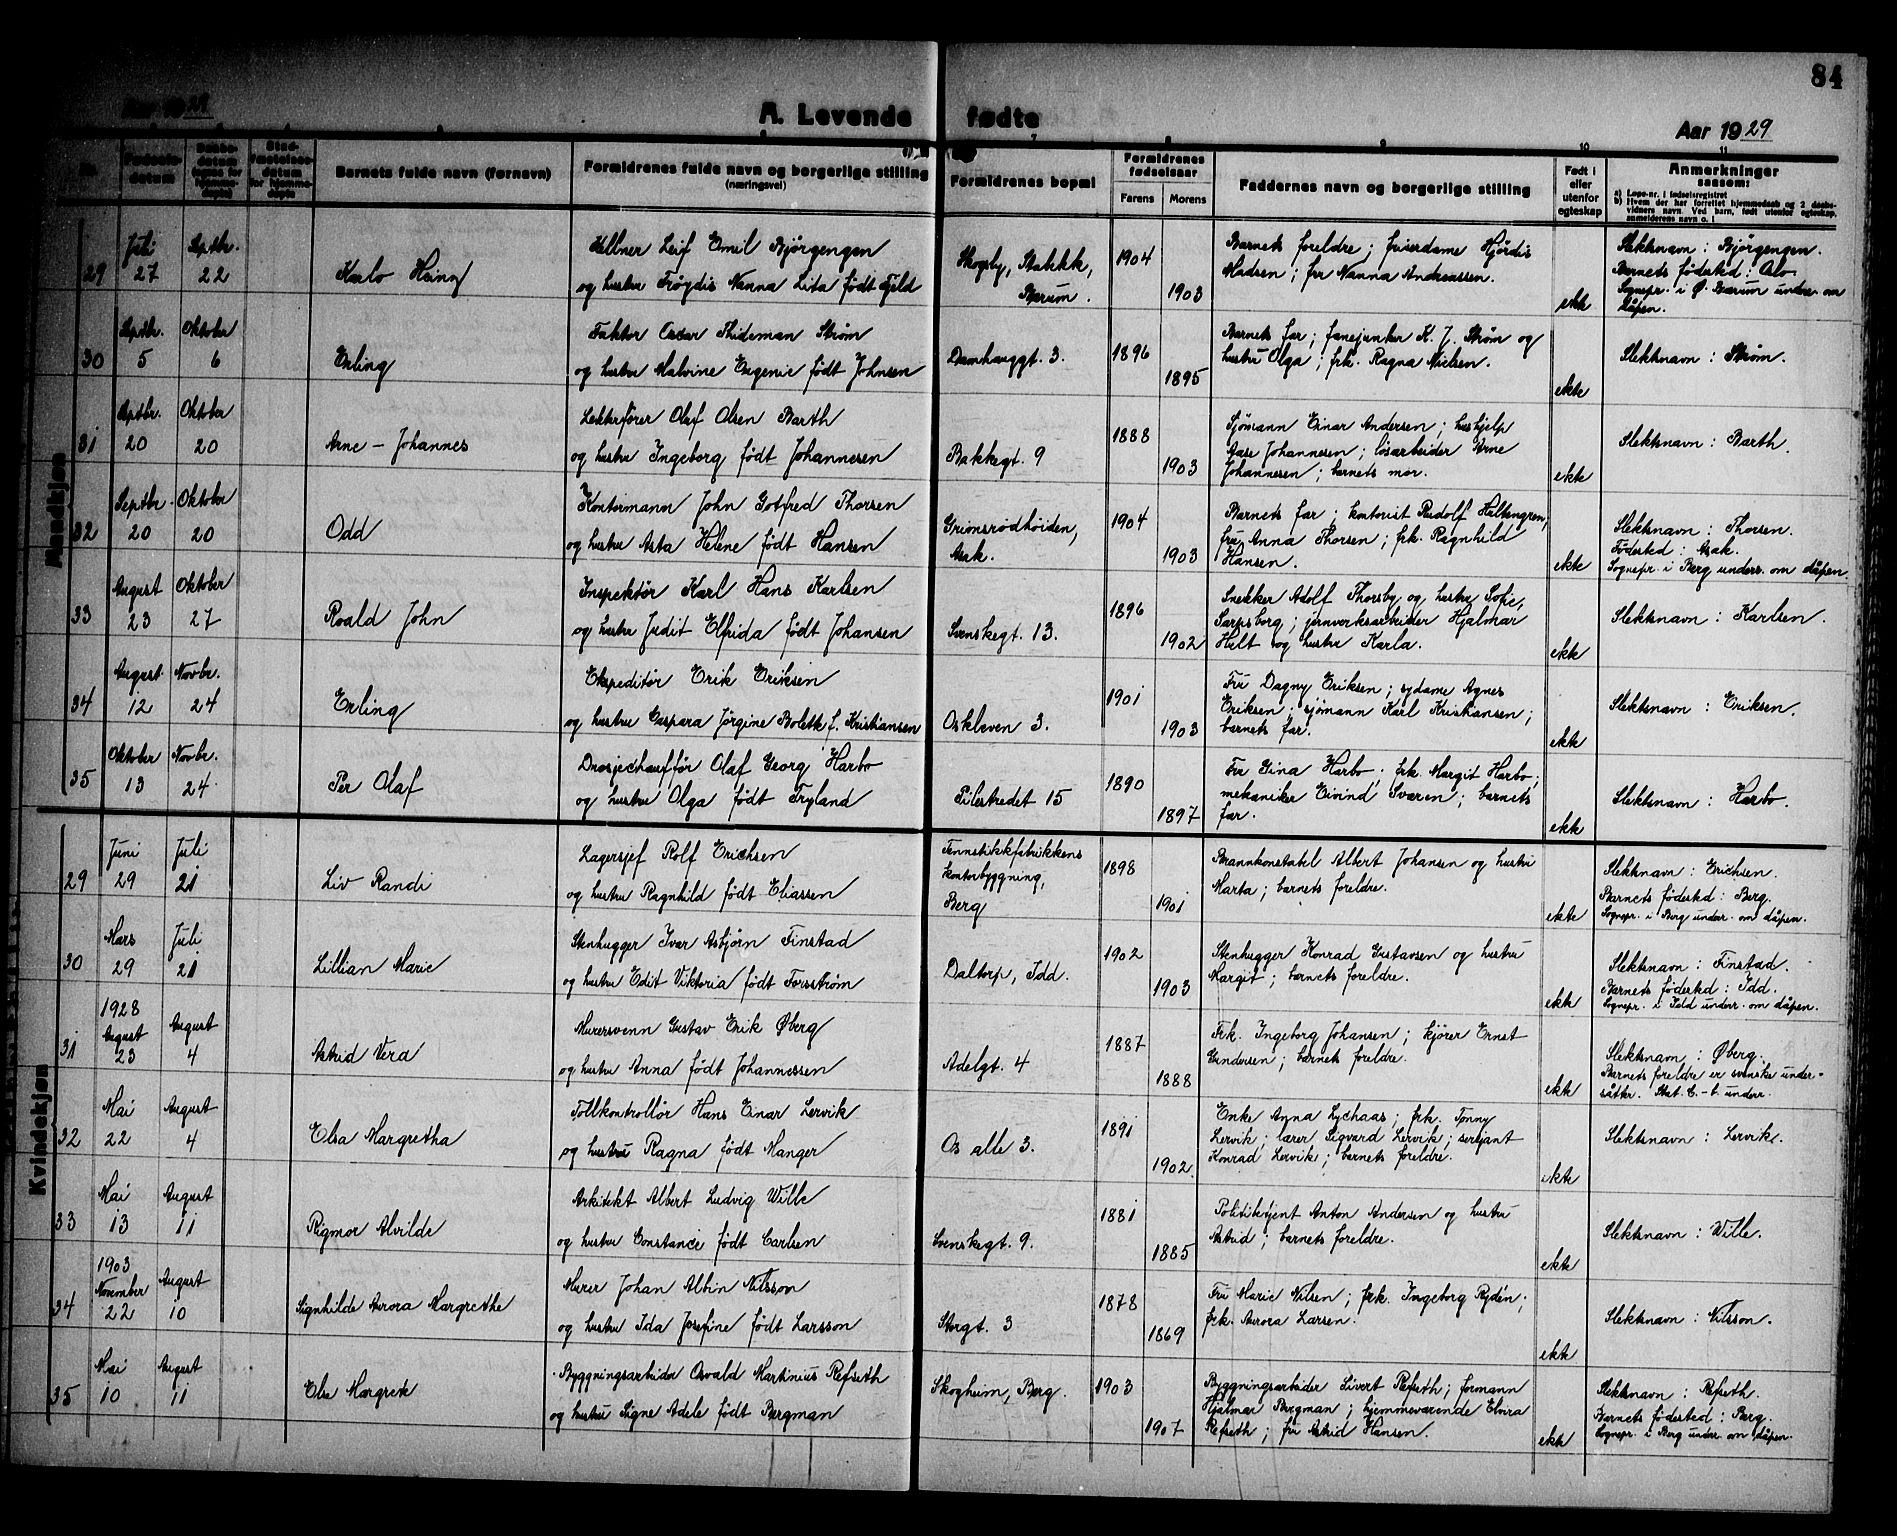 84
Aar 1929
A. Levende fødte
Aar 1929
Nr.
Fødsels-datum
Daabs-datum
Stad-fæstelses-datum for hjemme-døpte
Barnets fulde navn (førnavn)
Forældrenes fulde navn og borgerlige stilling (næringsvei)
Forældrenes bopæl
Forældrenes fødselsaar
Farens
Morens
Faddernes navn og borgerlige stilling
Født i eller utenfor egteskap
Anmerkninger
saasom:
a) Løpe-nr. i fødselsregistret
b) Hvem der har forrettet hjemmedaab og 2 daabs-
vidners navn. Ved barn, født utenfor egteskap,
anmelderens navn o. l.
Mandkjøn
29 Juli 27 Septbr. 22 Karlo Heinz
Kellner Leif Emil Bjørgengen
og hustru Frøydis Nanna Lita født Fjeld
Skogsby, Stabekk,
Bærum.
1904 1903
Barnets foreldre; frisérdame Hjørdis
Madsen; fru Nanna Andreassen.
ekte
Slektsnavn: Bjørgengen.
Barnets fødested: Oslo.
Sognepr. i Ø. Bærum underr. om
dåpen.
30 Septbr. 5 Oktober 6 Erling
Faktor Oscar Thideman Strøm
og hustru Malvine Eugenie født Johnsen
Damhauggt. 3.
1896 1895
Barnets far; fanejunker K. J. Strøm og
hustru Olga; frk. Ragna Nielsen.
ekte
Slektsnavn: Strøm.
31 Septbr. 20 Oktober 20 Arne - Johannes
Lekterfører Olaf Olsen Barth
og hustru Ingeborg født Johannesen
Bakkegt. 9
1888 1903
Sjømann Einar Andersen; hushjelp
Aase Johannesen; løsarbeider Arne
Johannesen; barnets mor.
ekte
Slektsnavn: Barth.
32 Septbr. 20 Oktober 20 Odd
Kontormann John Gotfred Thorsen
og hustru Asta Helene født Hansen
Grimsrødhøiden,
Asak.
1904 1903
Barnets far; kontorist Rudolf Heltengren,
fru Anna Thorsen; frk. Ragnhild
Hansen.
ekte
Slektsnavn: Thorsen.
Fødested: Asak.
Sognepr. i Berg underr. om dåpen.
33 August 23 Oktober 27 Roald John
Inspektør Karl Hans Karlsen
og hustru Judit Elfrida født Johansen
Svenskegt. 13.
1896 1902
Snekker Adolf Thorsby og hustru Sofie,
Sarpsborg; jernverksarbeider Hjalmar
Helt og hustru Karla.
ekte
Slektsnavn: Karlsen.
34 August 12 Novbr. 24 Erling
Ekspeditør Erik Eriksen
og hustru Caspara Jørgine Bolette f. Kristiansen
Oskleven 3.
1901 1903
Fru Dagny Eriksen; sydame Agnes
Eriksen; sjømann Karl Kristiansen;
barnets far.
ekte
Slektsnavn: Eriksen.
35 Oktober 13 Novbr. 24 Per Olaf
Drosjechauffør Olaf Georg Harbo
og hustru Olga født Tryland
Pilestredet 15
1890 1897
Fru Gina Harbo; frk. Margit Harbo;
mekaniker Eivind Sværen; barnets
far.
ekte
Slektsnavn: Harbo.
Kvindekjøn
29 Juni 29 Juli 21 Liv Randi
Lagersjef Rolf Erichsen
og hustru Ragnhild født Eliassen
Fennstikkfabrikkens
kontorbyggning,
Berg
1898 1901
Brannkonstabel Albert Johansen og hustru
Marta; barnets foreldre.
ekte
Slektsnavn: Erichsen.
Barnets fødested: Berg.
Sognepr. i Berg underr. om dåpen.
30 Mars 29 Juli 21 Lillian Marie
Stenhugger Ivar Asbjørn Finstad
og hustru Edit Viktoria født Forsstrøm
Daltorp, Idd.
1902 1903
Stenhugger Konrad Gustavsen og hustru
Margit; barnets foreldre.
ekte
Slektsnavn: Finstad.
Barnets fødested: Idd.
Sognepr. i Idd underr. om dåpen.
31 1928 August 23 August 4 Astrid Vera
Murersvenn Gustav Erik Øberg
og hustru Anna født Johannessen
Adelgt. 4
1887 1888
Frk. Ingeborg Johansen; kjører Ernst
Gundersen; barnets foreldre.
ekte
Slektsnavn: Øberg.
Barnets foreldre er svenske under-
såtter. Stat. C.-b. underr.
32 Mai 22 August 4 Elsa Margretha
Tollkontrollør Hans Einar Lervik
og hustru Ragna født Manger
Os alle 3.
1891 1902
Enke Anna Lychaas; frk. Tonny
Lervik; lærer Sigvard Lervik; serjant
Konrad Lervik; barnets foreldre.
ekte
Slektsnavn: Lervik.
33 Mai 13 August 11 Rigmor Alvilde
Arkitekt Albert Ludvig Wille
og hustru Constance født Carlsen
Svenskegt. 9.
1881 1885
Politibetjent Anton Andersen og hustru
Astrid; barnets foreldre.
ekte
Slektsnavn: Wille.
34 1903 November 22 August 10 Signhilde Aurora Margrethe
Murer Johan Albin Nilsson
og hustru Ida Josefine født Larsson
Storgt. 3
1878 1869
Fru Marie Nilsen; frk. Ingeborg Rydén;
frk. Aurora Larsen.
ekte
Slektsnavn: Nilsson.
35 Mai 10 August 11 Else Margrete
Byggningsarbeider Osvald Martinius Refseth
og hustru Signe Adele født Bergman
Skogheim, Berg.
1903 1907
Byggningsarbeider Sivert Refseth; formann
Hjalmar Bergman; hjemmeværende Elvira
Refseth; fru Astrid Hansen.
ekte
Slektsnavn: Refseth.
Barnets fødested: Berg.
Sognepr. i Berg underr. om dåpen.